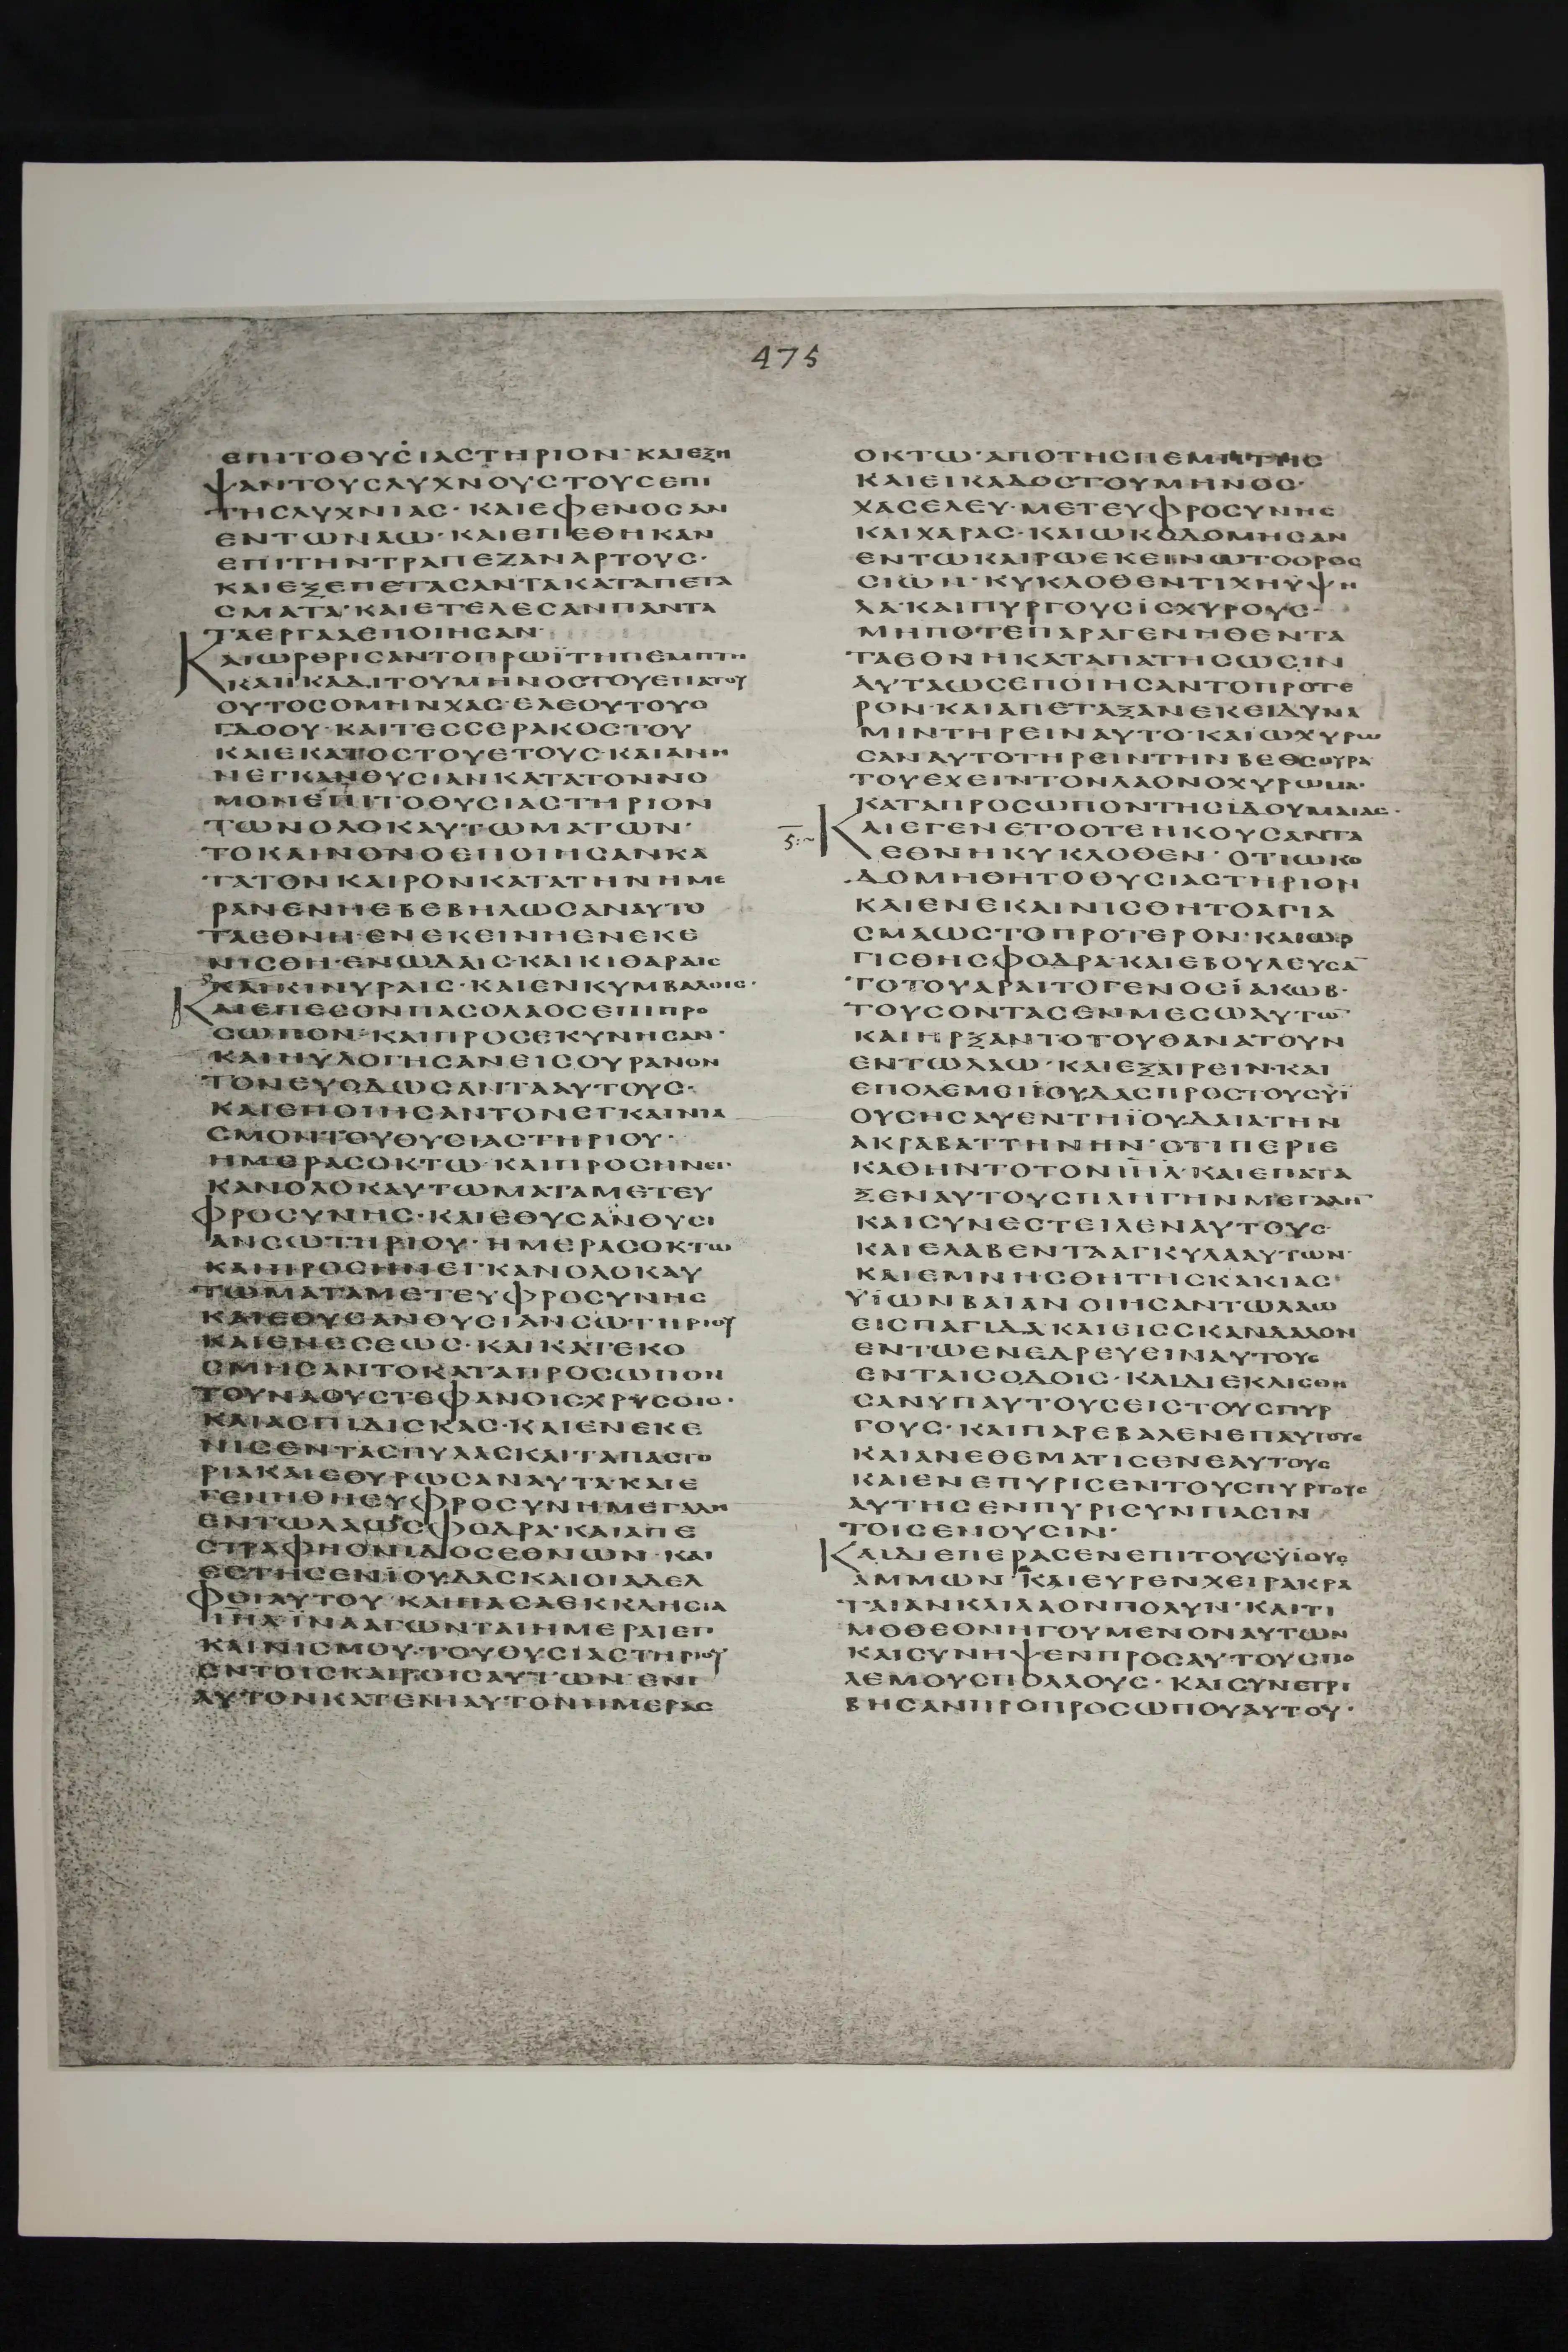 475
ΕΠΙΤΟΘΥΣΙΑΣΤΗΡΙΟΝ· ΚΑΙΕΞΗ
ΨΑΝΤΟΥΣΛΥΧΝΟΥΣΤΟΥΣΕΠΙ
ΤΗΣΛΥΧΝΙΑΣ· ΚΑΙΕΦΕΝΟΣΑΝ
ΕΝΤΩΝΑΩ· ΚΑΙΕΠΕΘΗΚΑΝ
ΕΠΙΤΗΝΤΡΑΠΕΖΑΝΑΡΤΟΥΣ·
ΚΑΙΕΞΕΠΕΤΑΣΑΝΤΑΚΑΤΑΠΕΤΑ
ΣΜΑΤΑ· ΚΑΙΕΤΕΛΕΣΑΝΠΑΝΤΑ
ΤΑΕΡΓΑΑΕΠΟΙΗΣΑΝ·
ΚΑΙΩΡΘΡΙΣΑΝΤΟΠΡΩΪΤΗΠΕΜΠΤΗ
ΚΑΙΙΚΑΔΙΤΟΥΜΗΝΟΣΤΟΥΕΝΑΤΟΥ
ΟΥΤΟΣΟΜΗΝΧΑΣΕΛΕΟΥΤΟΥΟ
ΓΔΟΟΥ· ΚΑΙΤΕΣΣΕΡΑΚΟΣΤΟΥ
ΚΑΙΕΚΑΤΟΣΤΟΥΕΤΟΥΣ· ΚΑΙΑΝΗ
ΝΕΓΚΑΝΘΥΣΙΑΝΚΑΤΑΤΟΝΝΟ
ΜΟΝΕΠΙΤΟΘΥΣΙΑΣΤΗΡΙΟΝ
ΤΩΝΟΛΟΚΑΥΤΩΜΑΤΩΝ·
ΤΟΚΑΙΝΟΝΟΕΠΟΙΗΣΑΝΚΑ
ΤΑΤΟΝΚΑΙΡΟΝΚΑΤΑΤΗΝΗΜΕ
ΡΑΝΕΝΗΕΒΕΒΗΛΩΣΑΝΑΥΤΟ
ΤΑΕΘΝΗ· ΕΝΕΚΕΙΝΗΕΝΕΚΕ
ΝΙΣΘΗ· ΕΝΩΔΑΙΣ· ΚΑΙΚΙΘΑΡΑΙΣ
ΚΑΙΚΙΝΥΡΑΙΣ· ΚΑΙΕΝΚΥΜΒΑΛΟΙΣ·
ΚΑΙΕΠΕΣΟΝΠΑΣΟΛΑΟΣΕΠΙΠΡΟ
ΣΩΠΟΝ· ΚΑΙΠΡΟΣΕΚΥΝΗΣΑΝ·
ΚΑΙΗΥΛΟΓΗΣΑΝΕΙΣΟΥΡΑΝΟΝ
ΤΟΝΕΥΟΔΩΣΑΝΤΑΑΥΤΟΥΣ·
ΚΑΙΕΠΟΙΗΣΑΝΤΟΝΕΓΚΑΙΝΙΑ
ΣΜΟΝΤΟΥΘΥΣΙΑΣΤΗΡΙΟΥ·
ΗΜΕΡΑΣΟΚΤΩ· ΚΑΙΠΡΟΣΗΝΕΓ·
ΚΑΝΟΛΟΚΑΥΤΩΜΑΤΑΜΕΤΕΥ
ΦΡΟΣΥΝΗΣ· ΚΑΙΕΘΥΣΑΝΘΥΣΙ
ΑΝΣΩΤΗΡΙΟΥ· ΗΜΕΡΑΣΟΚΤΩ
ΚΑΙΠΡΟΣΗΝΕΓΚΑΝΟΛΟΚΑΥ
ΤΩΜΑΤΑΜΕΤΕΥΦΡΟΣΥΝΗΣ
ΚΑΙΕΘΥΣΑΝΘΥΣΙΑΝΣΩΤΗΡΙΟΥ
ΚΑΙΕΝΕΣΕΩΣ· ΚΑΙΚΑΤΕΚΟ
ΣΜΗΣΑΝΤΟΚΑΤΑΠΡΟΣΩΠΟΝ
ΤΟΥΝΑΟΥΣΤΕΦΑΝΟΙΣΧΡΥΣΟΙΣ·
ΚΑΙΑΣΠΙΔΙΣΚΑΣ· ΚΑΙΕΝΕΚΕ
ΝΙΣΕΝΤΑΣΠΥΛΑΣΚΑΙΤΑΠΑΣΤΟ
ΡΙΑΚΑΙΕΘΥΡΩΣΑΝΑΥΤΑ· ΚΑΙΕ
ΓΕΝΗΘΗΕΥΦΡΟΣΥΝΗΜΕΓΑΛΗ
ΕΝΤΩΛΑΩΣΦΟΔΡΑ· ΚΑΙΑΠΕ
ΣΤΡΑΦΗΟΝΙΔΙΟΣΕΘΝΩΝ· ΚΑΙ
ΕΣΤΗΣΕΝΙΟΥΔΑΣΚΑΙΟΙΑΔΕΛ
ΦΟΙΑΥΤΟΥ· ΚΑΙΠΑΣΑΕΚΚΛΗΣΙΑ
ΙΗΛΪΝΑΑΓΩΝΤΑΙΗΜΕΡΑΙΕΓ·
ΚΑΙΝΙΣΜΟΥ· ΤΟΥΘΥΣΙΑΣΤΗΡΙΟΥ
ΕΝΤΟΙΣΚΑΙΡΟΙΣΑΥΤΩΝ· ΕΝΙ
ΑΥΤΟΝΚΑΤΕΝΙΑΥΤΟΝΗΜΕΡΑΣ
ΟΚΤΩ· ΑΠΟΤΗΣΠΕΜΠΤΗΣ
ΚΑΙΕΙΚΑΔΟΣΤΟΥΜΗΝΟΣ·
ΧΑΣΕΛΕΥ· ΜΕΤΕΥΦΡΟΣΥΝΗΣ
ΚΑΙΧΑΡΑΣ· ΚΑΙΩΚΟΔΟΜΗΣΑΝ
ΕΝΤΩΚΑΙΡΩΕΚΕΙΝΩΤΟΟΡΟΣ
ΣΙΩΝ· ΚΥΚΛΟΘΕΝΤΙΧΗΫΨΗ
ΛΑ· ΚΑΙΠΥΡΓΟΥΣΪΣΧΥΡΟΥΣ·
ΜΗΠΟΤΕΠΑΡΑΓΕΝΗΘΕΝΤΑ
ΤΑΕΘΝΗΚΑΤΑΠΑΤΗΣΩΣΙΝ
ΑΥΤΑΩΣΕΠΟΙΗΣΑΝΤΟΠΡΟΤΕ
ΡΟΝ· ΚΑΙΑΠΕΤΑΞΑΝΕΚΕΙΔΥΝΑ
ΜΙΝΤΗΡΕΙΝΑΥΤΟ· ΚΑΙΩΧΥΡΩ
ΣΑΝΑΥΤΟΤΗΡΕΙΝΤΗΝΒΕΘΣΟΥΡΑ
ΤΟΥΕΧΕΙΝΤΟΝΛΑΟΝΟΧΥΡΩΜΑ·
ΚΑΤΑΠΡΟΣΩΠΟΝΤΗΣΪΔΟΥΜΑΙΑΣ·
ΚΑΙΕΓΕΝΕΤΟΟΤΕΗΚΟΥΣΑΝΤΑ
ΕΘΝΗΚΥΚΛΟΘΕΝ· ΟΤΙΩΚΟ
ΔΟΜΗΘΗΤΟΘΥΣΙΑΣΤΗΡΙΟΝ
ΚΑΙΕΝΕΚΑΙΝΙΣΘΗΤΟΑΓΙΑ
ΣΜΑΩΣΤΟΠΡΟΤΕΡΟΝ· ΚΑΙΩΡ
ΓΙΣΘΗΣΦΟΔΡΑ· ΚΑΙΕΒΟΥΛΕΥΣΑ
ΤΟΤΟΥΑΡΑΙΤΟΓΕΝΟΣΪΑΚΩΒ·
ΤΟΥΣΟΝΤΑΣΕΝΜΕΣΩΑΥΤΩ
ΚΑΙΗΡΞΑΝΤΟΤΟΥΘΑΝΑΤΟΥΝ
ΕΝΤΩΛΑΩ· ΚΑΙΕΞΑΙΡΕΙΝ· ΚΑΙ
ΕΠΟΛΕΜΕΙΪΟΥΔΑΣΠΡΟΣΤΟΥΣΫΪ
ΟΥΣΗΣΑΥΕΝΤΗΪΟΥΔΑΙΑΤΗΝ
ΑΚΡΑΒΑΤΤΗΝΗΝ· ΟΤΙΠΕΡΙΕ
ΚΑΘΗΝΤΟΤΟΝΙΗΛ· ΚΑΙΕΠΑΤΑ
ΞΕΝΑΥΤΟΥΣΠΛΗΓΗΝΜΕΓΑΛΗ
ΚΑΙΣΥΝΕΣΤΕΙΛΕΝΑΥΤΟΥΣ
ΚΑΙΕΛΑΒΕΝΤΑΑΓΚΥΛΑΑΥΤΩΝ·
ΚΑΙΕΜΝΗΣΘΗΤΗΣΚΑΚΙΑΣ
ΥΪΩΝΒΑΙΑΝΟΙΗΣΑΝΤΩΛΑΩ
ΕΙΣΠΑΓΙΔΑΚΑΙΕΙΣΣΚΑΝΔΑΛΟΝ
ΕΝΤΩΕΝΕΔΡΕΥΕΙΝΑΥΤΟΥΣ
ΕΝΤΑΙΣΟΔΟΙΣ· ΚΑΙΔΙΕΚΛΙΣΘΗ
ΣΑΝΥΠΑΥΤΟΥΣΕΙΣΤΟΥΣΠΥΡ
ΓΟΥΣ· ΚΑΙΠΑΡΕΒΑΛΕΝΕΠΑΥΤΟΥΣ
ΚΑΙΑΝΕΘΕΜΑΤΙΣΕΝΕΑΥΤΟΥΣ
ΚΑΙΕΝΕΠΥΡΙΣΕΝΤΟΥΣΠΥΡΓΟΥΣ
ΑΥΤΗΣΕΝΠΥΡΙΣΥΝΠΑΣΙΝ
ΤΟΙΣΕΝΟΥΣΙΝ·
ΚΑΙΔΙΕΠΕΡΑΣΕΝΕΠΙΤΟΥΣΫΪΟΥΣ
ΑΜΜΩΝ· ΚΑΙΕΥΡΕΝΧΕΙΡΑΚΡΑ
ΤΑΙΑΝΚΑΙΛΑΟΝΠΟΛΥΝ· ΚΑΙΤΙ
ΜΟΘΕΟΝΗΓΟΥΜΕΝΟΝΑΥΤΩΝ
ΚΑΙΣΥΝΗΨΕΝΠΡΟΣΑΥΤΟΥΣΠΟ
ΛΕΜΟΥΣΠΟΛΛΟΥΣ· ΚΑΙΣΥΝΕΤΡΙ
ΒΗΣΑΝΠΡΟΠΡΟΣΩΠΟΥΑΥΤΟΥ·